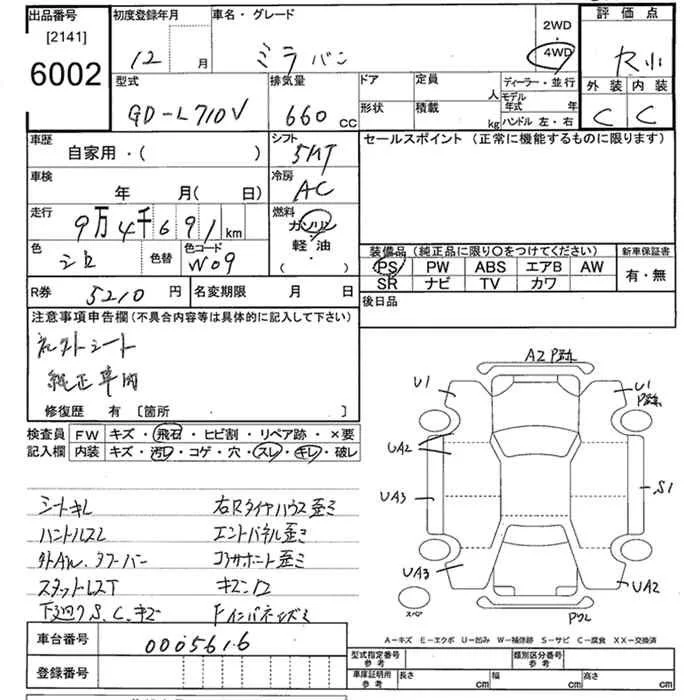 出品番号
[2141]
6002
初度登録年月
12 月
車名・グレード
ミラバン
2WD
4WD
評価点
R小
外装 内装
C C
型式
GD-L710V
排気量
660 cc
ドア
形状
定員
人
積載
kg
ディーラー・並行
モデル年式 年
ハンドル 左・右
車歴
自家用・( )
シフト
5MT
車検
年 月( 日)
冷房
AC
走行
9万4千691km
燃料
ガソリン
軽油
( ・ )
色
シロ
色替
色コード
W09
セールスポイント (正常に機能するものに限ります)
装備品 (純正品に限り〇をつけてください)
新車保証書
PS PW ABS エアB AW
SR ナビ TV カワ
有・無
R券 5210 円
名変期限 月 日
後日品
注意事項申告欄 (不具合内容等は具体的に記入して下さい)
シート
純正車
修復歴 有 [箇所 ]
検査員 FW キズ・飛石・ヒビ割・リペア跡・×要
記入欄 内装 キズ・汚レ・コゲ・穴・スレ・キレ・破レ
シートキレ
右Rタイヤハウス歪ミ
ハンドルスレ
エンドパネル歪ミ
外AW、タワーバー
コアサポート歪ミ
スタッドレスT
キズ凹
下廻りS、C、キズ
FインパネネジミA2 P跡
U1
U1
P跡
UA2
UA3
S1
UA3
UA2
スペア
A-キズ E-エクボ U-凹み W-補修跡 S-サビ C-腐食 XX-交換済
車台番号
0005616
登録番号
型式指定番号
参考
類別区分番号
参考
車庫証明用
参考
長さ cm
幅 cm
高さ cm